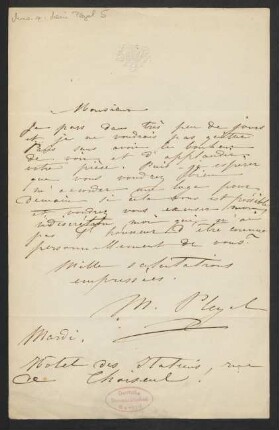 Monsieur
Je pars dans très peu de jours
et je ne voudrais pas quitter
Paris sans avoir le bonheur
de voir et d'applaudir
votre pièce. Puis-j'espérer
que vous voudrez bien
m'accorder une loge pour
demain si cela vous est possible
et voudrez vous excuser mon
indiscrétion moi qui n'ai
pas l'honneur d'être connue
personnellement de vous
Mille salutations
empressées.
M. Pleyel
Mardi.
Hotel des Italiens, rue
de Choiseul.